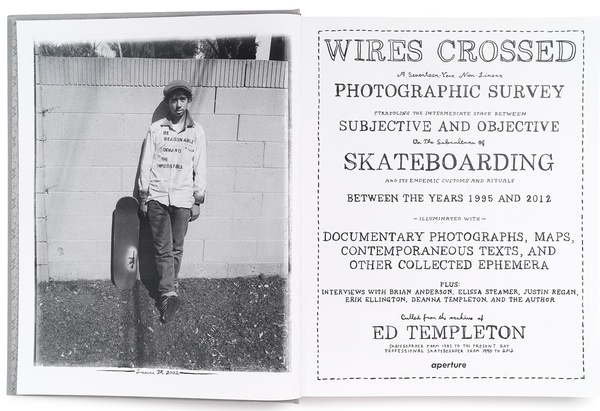 BE
REASONABLE
DEMAND
THE
IMPOSSIBLE
2002
WIRES CROSSED
A Seventeen-Year Non-Linear
PHOTOGRAPHIC SURVEY
STRADDLING THE INTERMEDIATE SPACE BETWEEN
SUBJECTIVE AND OBJECTIVE
On the Subculture of
SKATEBOARDING
AND ITS ENDEMIC CUSTOMS AND RITUALS
BETWEEN THE YEARS 1995 AND 2012
– ILLUMINATED WITH –
DOCUMENTARY PHOTOGRAPHS, MAPS,
CONTEMPORANEOUS TEXTS, AND
OTHER COLLECTED EPHEMERA
PLUS:
INTERVIEWS WITH BRIAN ANDERSON, ELISSA STEAMER, JUSTIN REGAN,
ERIK ELLINGTON, DEANNA TEMPLETON, AND THE AUTHOR
Culled from the archive of
ED TEMPLETON
SKATEBOARDER FROM 1985 TO THE PRESENT DAY
PROFESSIONAL SKATEBOARDER FROM 1990 TO 2012
aperture